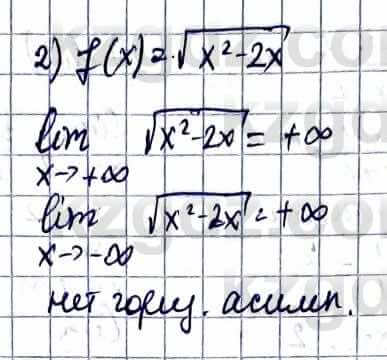 2) f(x) = √(x²-2x)
lim √(x²-2x) = +∞
x→+∞
lim √(x²-2x) = +∞
x→-∞
нет гориз. асимп.